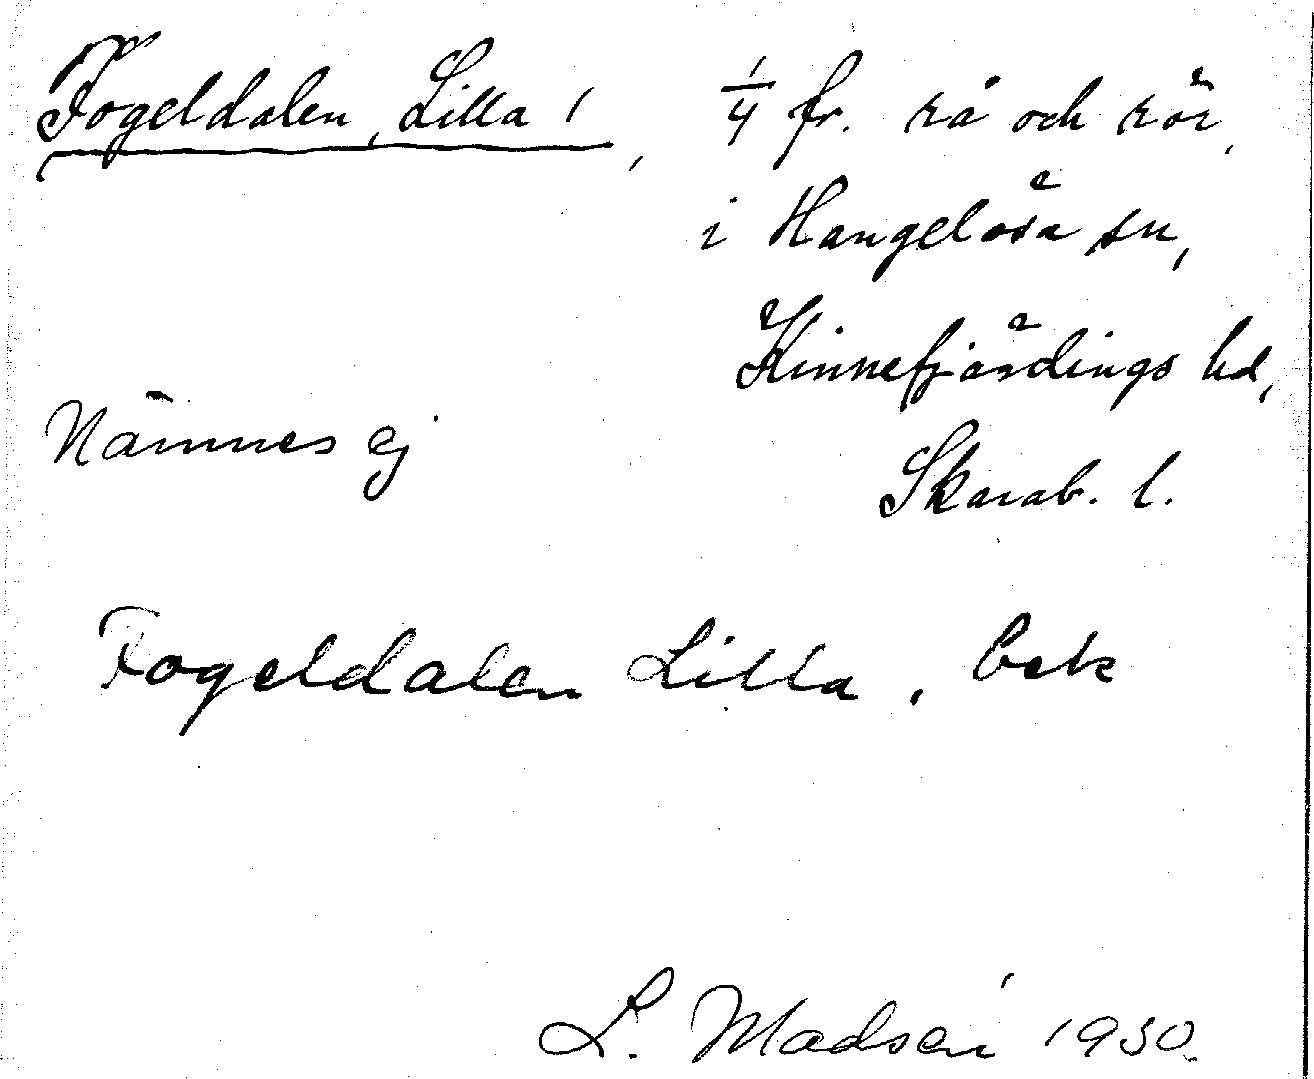 Fogeldalen, Lilla 1, 1/4 fr. rå och rör,
i Hangelösa sn,
Kinnefjärdings hd,
Nämnes ej
Skarab. l.
Fogeldalen Lilla, bek
L. Madsén 1930.